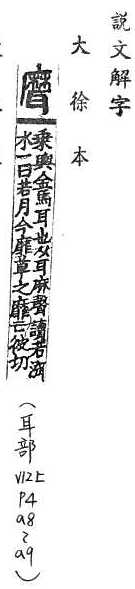 説文解字
大徐本
乘輿金馬耳也从耳麻聲讀若渳
水一曰若月令靡草之靡亡彼切
(耳部 V12上 P4 a8~a9)